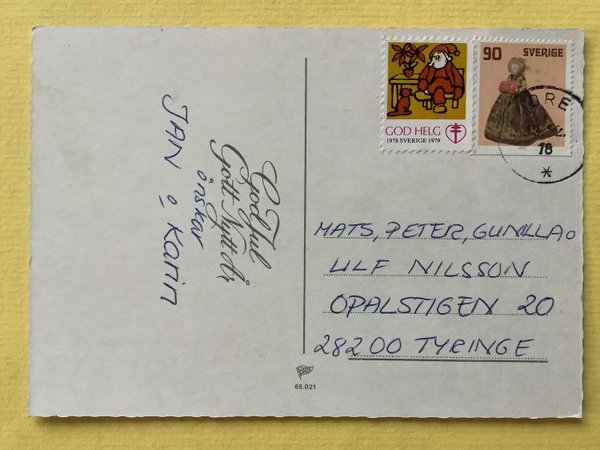 GOD HELG
1978 SVERIGE 1979
90 SVERIGE
78
God Jul
Gott Nytt År
önskar
JAN o Karin
MATS, PETER, GUNILLA o
ULF NILSSON
OPALSTIGEN 20
28200 TYRINGE
65.021